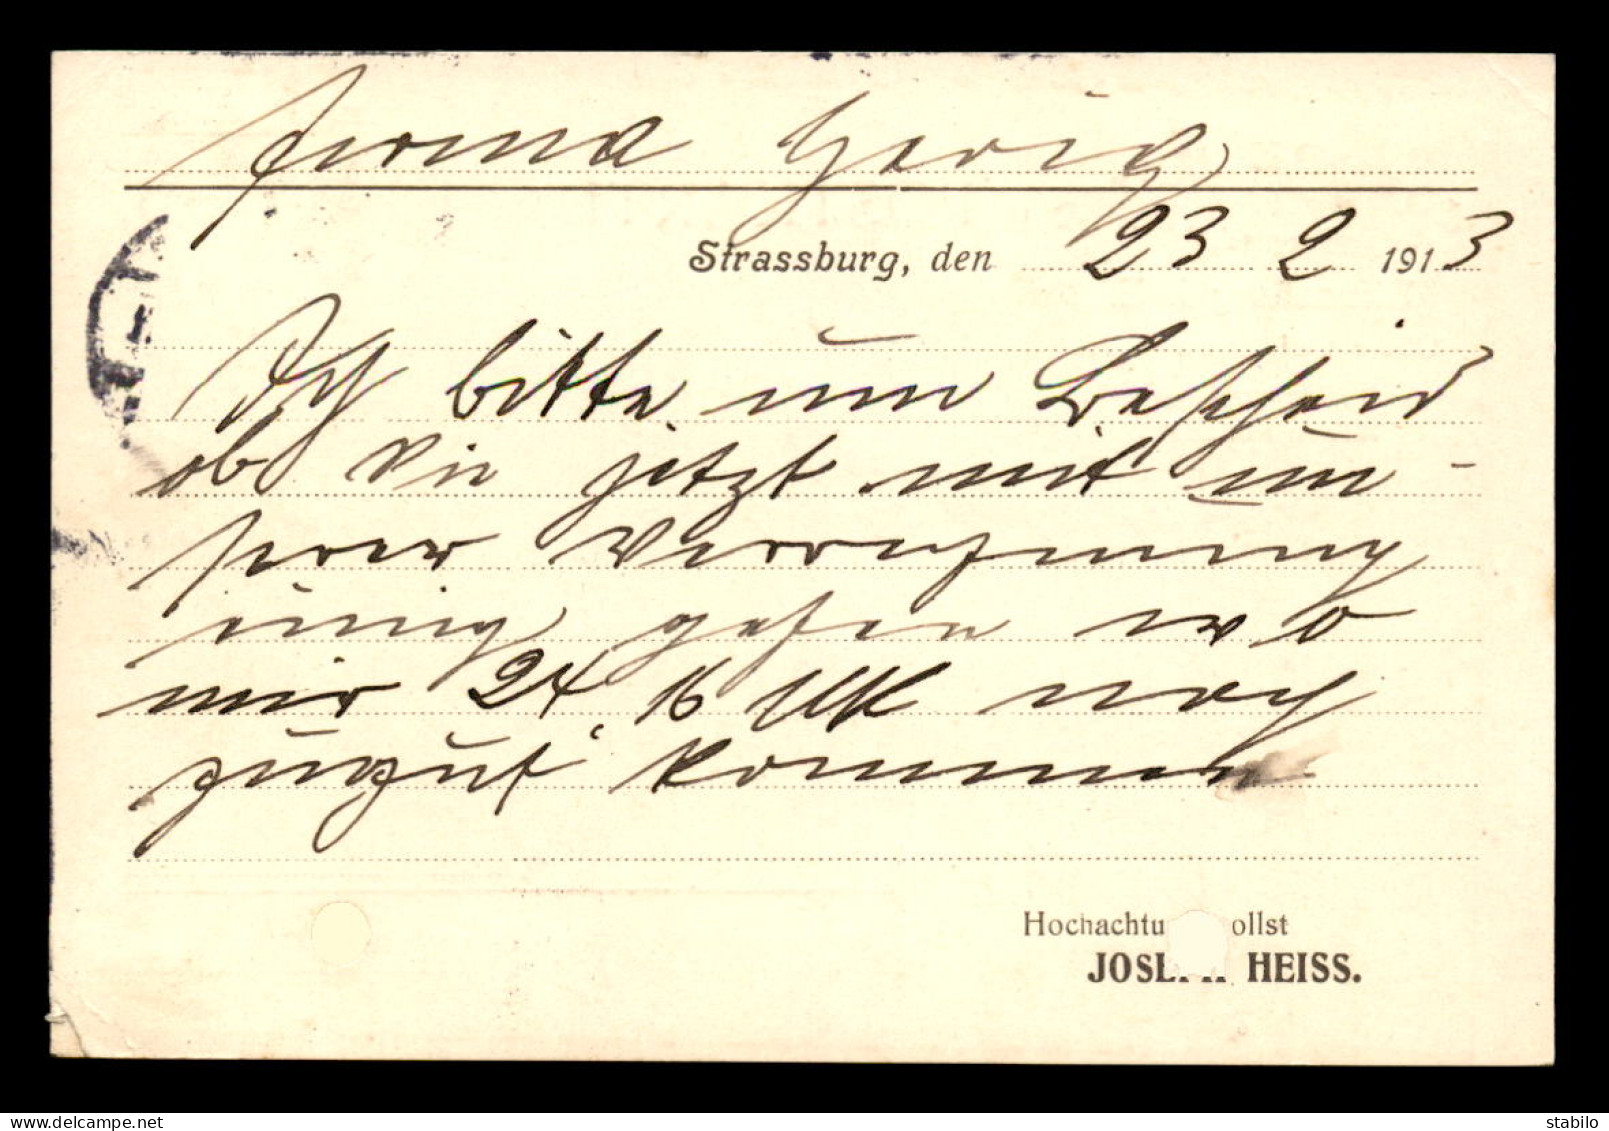 Firma Gerig
Strassburg, den 23 2 1913
Ich bitte um Bescheid
ob Sie jetzt mit un-
serer Verrechnung
einig gehen wo
mir 24,16 Mk noch
zugut kommen
Hochachtu ollst
JOSE HEISS.
www.delcampe.net
stabilo